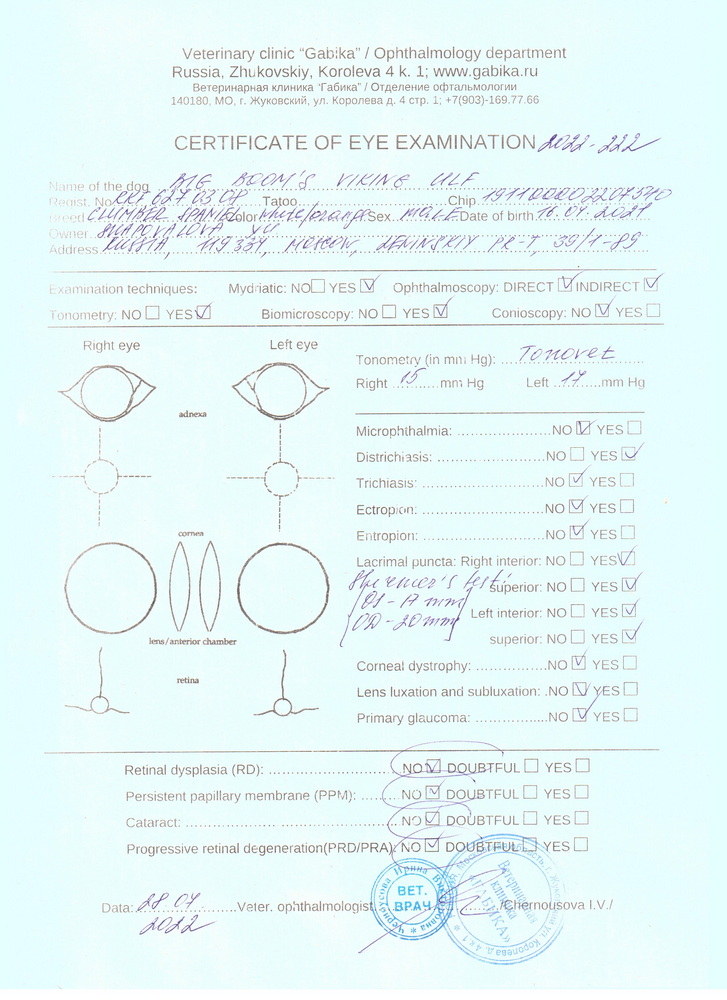 Veterinary clinic "Gabika" / Ophthalmology department
Russia, Zhukovskiy, Koroleva 4 k. 1; www.gabika.ru
Ветеринарная клиника "Габика" / Отделение офтальмологии
140180, МО, г. Жуковский, ул. Королева д. 4 стр. 1; +7(903)-169.77.66
CERTIFICATE OF EYE EXAMINATION 2022-222
Name of the dog BIG BOOM'S VIKING ULF
Regist. No RKF 6276307 Tatoo Chip
Breed CLUMBER SPANIEL Color white/orange Sex MALE Date of birth 16.04.2021
Owner SHAPOVALOVA YU
Address RUSSIA, 119334, MOSCOW, LENINSKIY PR-T, 39/1-89
Examination techniques: Mydriatic: NO YES Ophthalmoscopy: DIRECT INDIRECT
Tonometry: NO YES Biomicroscopy: NO YES Conioscopy: NO YES
Right eye Left eye
adnexa
cornea
lens/anterior chamber
retina
Tonometry (in mm Hg): Tonovet
Right 15 mm Hg Left 17 mm Hg
Microphthalmia: NO YES
Districhiasis: NO YES
Trichiasis: NO YES
Ectropion: NO YES
Entropion: NO YES
Lacrimal puncta: Right interior: NO YES
superior: NO YES
Left interior: NO YES
superior: NO YES
OS - 17 mm
OD - 20 mm
Corneal dystrophy: NO YES
Lens luxation and subluxation: NO YES
Primary glaucoma: NO YES
Retinal dysplasia (RD): NO DOUBTFUL YES
Persistent papillary membrane (PPM): NO DOUBTFUL YES
Cataract: NO DOUBTFUL YES
Progressive retinal degeneration(PRD/PRA): NO DOUBTFUL YES
Data: 28.07 2022 Veter. ophthalmologist /Chernousova I.V./
Черноусова Ирина
ВЕТ.
ВРАЧ
Ветеринарная
клиника
«ГАБИКА»